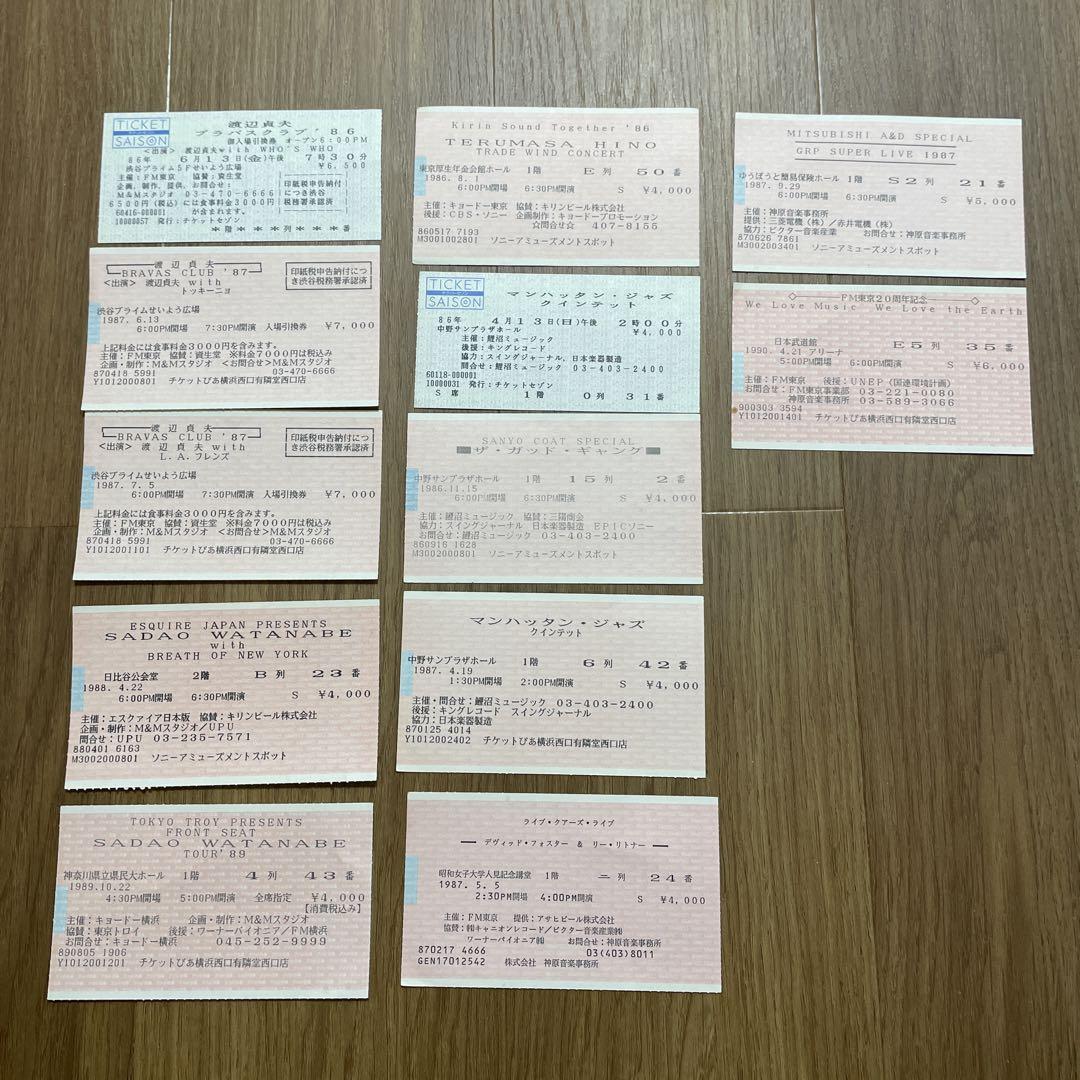 TICKET
SAISON
渡辺貞夫
ブラバスクラブ'86
御入場引換券 オープン6:00PM
<出演> 渡辺貞夫with WHO'S WHO
86年 6月13日(金)午後 7時30分
渋谷プライム5Fせいよう広場 ¥6,500
主催:FM東京 協賛:資生堂
企画、制作、提供、お問合せ:
M&Mスタジオ 03-470-6666
6500円(税込)には食事料金3000円
60416-000001 が含まれます。
10000057 発行:チケットセゾン
印紙税申告納付
につき渋谷
税務署承認済
***階***列***番
渡辺貞夫
BRAVAS CLUB '87
<出演> 渡辺貞夫 with
トッキーニョ
印紙税申告納付につ
き渋谷税務署承認済
渋谷プライムせいよう広場
1987. 6.13
6:00PM開場 7:30PM開演 入場引換券 ¥7,000
上記料金には食事料金3000円を含みます。
主催:FM東京 協賛:資生堂 ※料金7000円は税込み
企画・制作:M&Mスタジオ <お問合せ>M&Mスタジオ
870418 5991 03-470-6666
Y1012000801 チケットぴあ横浜西口有隣堂西口店
渡辺貞夫
BRAVAS CLUB '87
<出演> 渡辺貞夫 with
L.A.フレンズ
印紙税申告納付につ
き渋谷税務署承認済
渋谷プライムせいよう広場
1987. 7.5
6:00PM開場 7:30PM開演 入場引換券 ¥7,000
上記料金には食事料金3000円を含みます。
主催:FM東京 協賛:資生堂 ※料金7000円は税込み
企画・制作:M&Mスタジオ <お問合せ>M&Mスタジオ
870418 5991 03-470-6666
Y1012001101 チケットぴあ横浜西口有隣堂西口店
ESQUIRE JAPAN PRESENTS
SADAO WATANABE
with
BREATH OF NEW YORK
日比谷公会堂 2階 B列 23番
1988. 4.22
6:00PM開場 6:30PM開演 S ¥4,000
主催:エスクァイア日本版 協賛:キリンビール株式会社
企画・制作:M&Mスタジオ/UPU
問合せ:UPU 03-235-7571
880401 6163
M3002000801 ソニーアミューズメントスポット
TOKYO TROY PRESENTS
FRONT SEAT
SADAO WATANABE
TOUR'89
神奈川県立県民大ホール 1階 4列 43番
1989.10.22
4:30PM開場 5:00PM開演 全席指定 ¥4,000
【消費税込み】
主催:キョードー横浜 企画・制作:M&Mスタジオ
協賛:東京トロイ 後援:ワーナーパイオニア/FM横浜
お問合せ:キョードー横浜 045-252-9999
890805 1906
Y1012001201 チケットぴあ横浜西口有隣堂西口店
Kirin Sound Together '86
TERUMASA HINO
TRADE WIND CONCERT
東京厚生年金会館ホール 1階 E列 50番
1986. 8.1
6:00PM開場 6:30PM開演 S ¥4,000
主催:キョードー東京 協賛:キリンビール株式会社
後援:CBS・ソニー 企画制作:キョードープロモーション
☆問合せ☆ 407-8155
860517 7193
M3001002801 ソニーアミューズメントスポット
TICKET
SAISON
マンハッタン・ジャズ
クインテット
86年 4月13日(日)午後 2時00分
中野サンプラザホール ¥4,000
主催:鯉沼ミュージック
後援:キングレコード
協力:スイングジャーナル、日本楽器製造
問合せ:鯉沼ミュージック 03-403-2400
60118-000001
10000031 発行:チケットセゾン
S席 1階 O列 31番
SANYO COAT SPECIAL
■ザ・ガッド・ギャング■
中野サンプラザホール 1階 15列 2番
1986.11.15
6:00PM開場 6:30PM開演 S ¥4,000
主催:鯉沼ミュージック 協賛:三陽商会
協力:スイングジャーナル 日本楽器製造 EPICソニー
お問合せ:鯉沼ミュージック 03-403-2400
860916 1628
M3002000801 ソニーアミューズメントスポット
マンハッタン・ジャズ
クインテット
中野サンプラザホール 1階 6列 42番
1987. 4.19
1:30PM開場 2:00PM開演 S ¥4,000
主催・問合せ:鯉沼ミュージック 03-403-2400
後援:キングレコード スイングジャーナル
協力:日本楽器製造
870125 4014
Y1012002402 チケットぴあ横浜西口有隣堂西口店
ライブ・クアーズ・ライブ
― デヴィッド・フォスター & リー・リトナー ―
昭和女子大学人見記念講堂 1階 ニ列 24番
1987. 5. 5
2:30PM開場 4:00PM開演 S ¥4,000
主催:FM東京 提供:アサヒビール株式会社
協賛:㈱キャニオンレコード/ビクター音楽産業㈱
ワーナーパイオニア㈱ お問合せ:神原音楽事務所
870217 4666 03(403)8011
GEN17012542 株式会社 神原音楽事務所
MITSUBISHI A&D SPECIAL
GRP SUPER LIVE 1987
ゆうぽうと簡易保険ホール 1階 S2列 21番
1987. 9.29
6:00PM開場 6:30PM開演 S ¥5,000
主催:神原音楽事務所
提供:三菱電機(株)/赤井電機(株)
協力:ビクター音楽産業 お問合せ:神原音楽事務所
870626 7861
M3002003401 ソニーアミューズメントスポット
◇―FM東京20周年記念―◇
We Love Music We Love the Earth
日本武道館 E5列 35番
1990. 4.21 アリーナ
5:00PM開場 6:00PM開演 S ¥6,000
主催:FM東京 後援:UNEP(国連環境計画)
お問合せ:FM東京事業部 03-221-0080
神原音楽事務所 03-589-3066
900303 3594
Y1012001401 チケットぴあ横浜西口有隣堂西口店